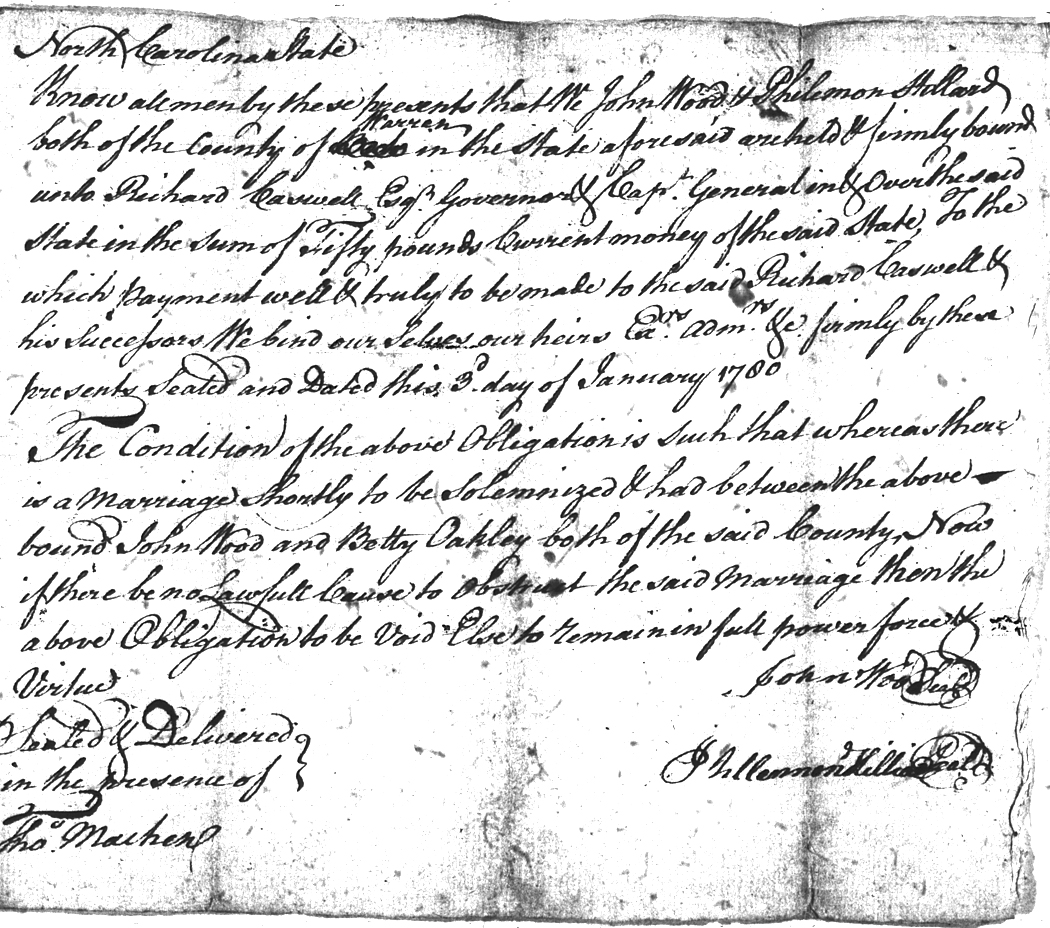 North Carolina State
Know all men by these presents that We John Wood & Philemon Hillard
both of the County of Warren in the State aforesaid are held & firmly bound
unto Richard Caswell Esqr. Governor & Capt. General in & Over the said
State in the sum of Fifty pounds Current money of the said State, To the
which payment well & truly to be made to the said Richard Caswell &
his Successors We bind our Selves our heirs Exrs. Admrs. &c. firmly by these
presents Sealed and Dated this 3d. day of January 1780
The Condition of the above Obligation is such that whereas there
is a Marriage Shortly to be Solemnized & had between the above
bound John Wood and Betty Oakley both of the said County, Now
if there be no Lawfull Cause to Obstruct the said Marriage then the
above Obligation to be Void Else to remain in full power force &
Virtue
John Wood Seal
Sealed & Delivered
in the presence of
Seal
Thos. Machen